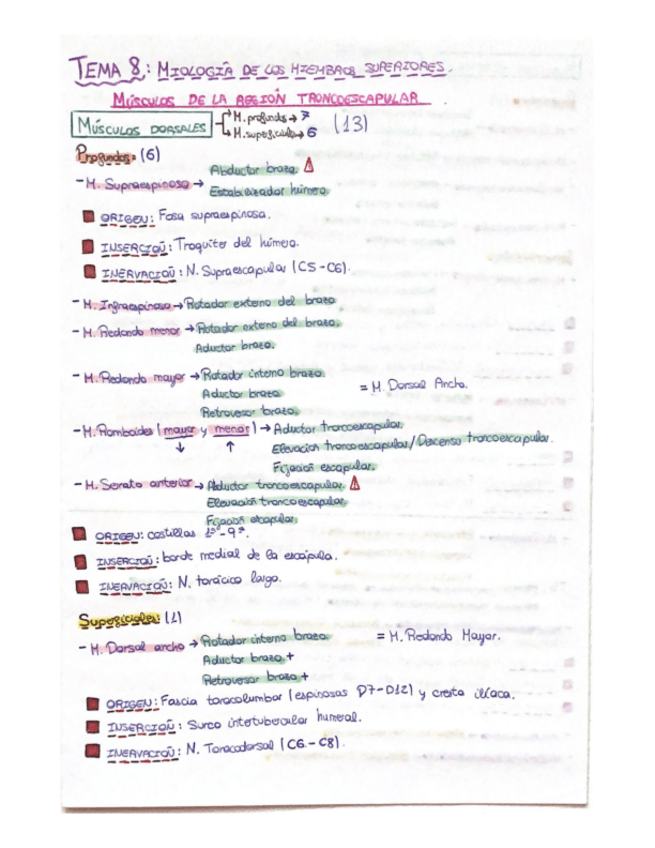 TEMA 8: MIOLOGÍA DE LOS MIEMBROS SUPERIORES.
MÚSCULOS DE LA REGIÓN TRONCOESCAPULAR
MÚSCULOS DORSALES M. profundos → 7 (13)
M. superficiales → 6
Profundos: (6)
- M. Supraespinoso → Abductor brazo.
Estabilizador húmero.
ORIGEN: Fosa supraespinosa.
INSERCIÓN: Troquiter del húmero.
INERVACIÓN: N. Supraescapular (C5-C6).
- M. Infraespinoso → Rotador externo del brazo
- M. Redondo menor → Rotador externo del brazo.
Aductor brazo.
- M. Redondo mayor → Rotador interno brazo.
Aductor brazo = M. Dorsal Ancho.
Retroversor brazo.
- M. Romboides (mayor y menor) → Aductor troncoescapular.
↓ ↑ Elevación troncoescapular/Descenso troncoescapular.
Fijación escapular.
- M. Serrato anterior → Abductor troncoescapular.
Elevación troncoescapular
Fijación escapular.
ORIGEN: costillas 1ª-9ª.
INSERCIÓN: borde medial de la escápula.
INERVACIÓN: N. torácico largo.
Superficiales: (1)
- M. Dorsal ancho → Rotador interno brazo. = M. Redondo Mayor.
Aductor brazo +
Retroversor brazo +
ORIGEN: Fascia toracolumbar (espinosas D7-D12) y cresta ilíaca.
INSERCIÓN: Surco intertubercular humeral.
INERVACIÓN: N. Toracodorsal (C6-C8).